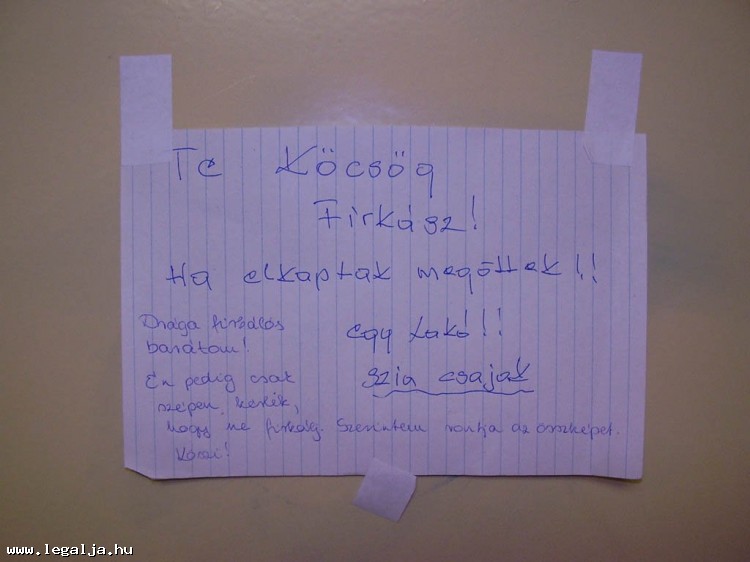 Te Köcsög
Firkász!
Ha elkaptak megöttek!!
egy lakó!!
szia csajok
Drága firkálós
barátom!
Én pedig csak
szépen kérlek,
hogy ne firkálj. Szerintem rontja az összképet.
Köszi!
www.legalja.hu